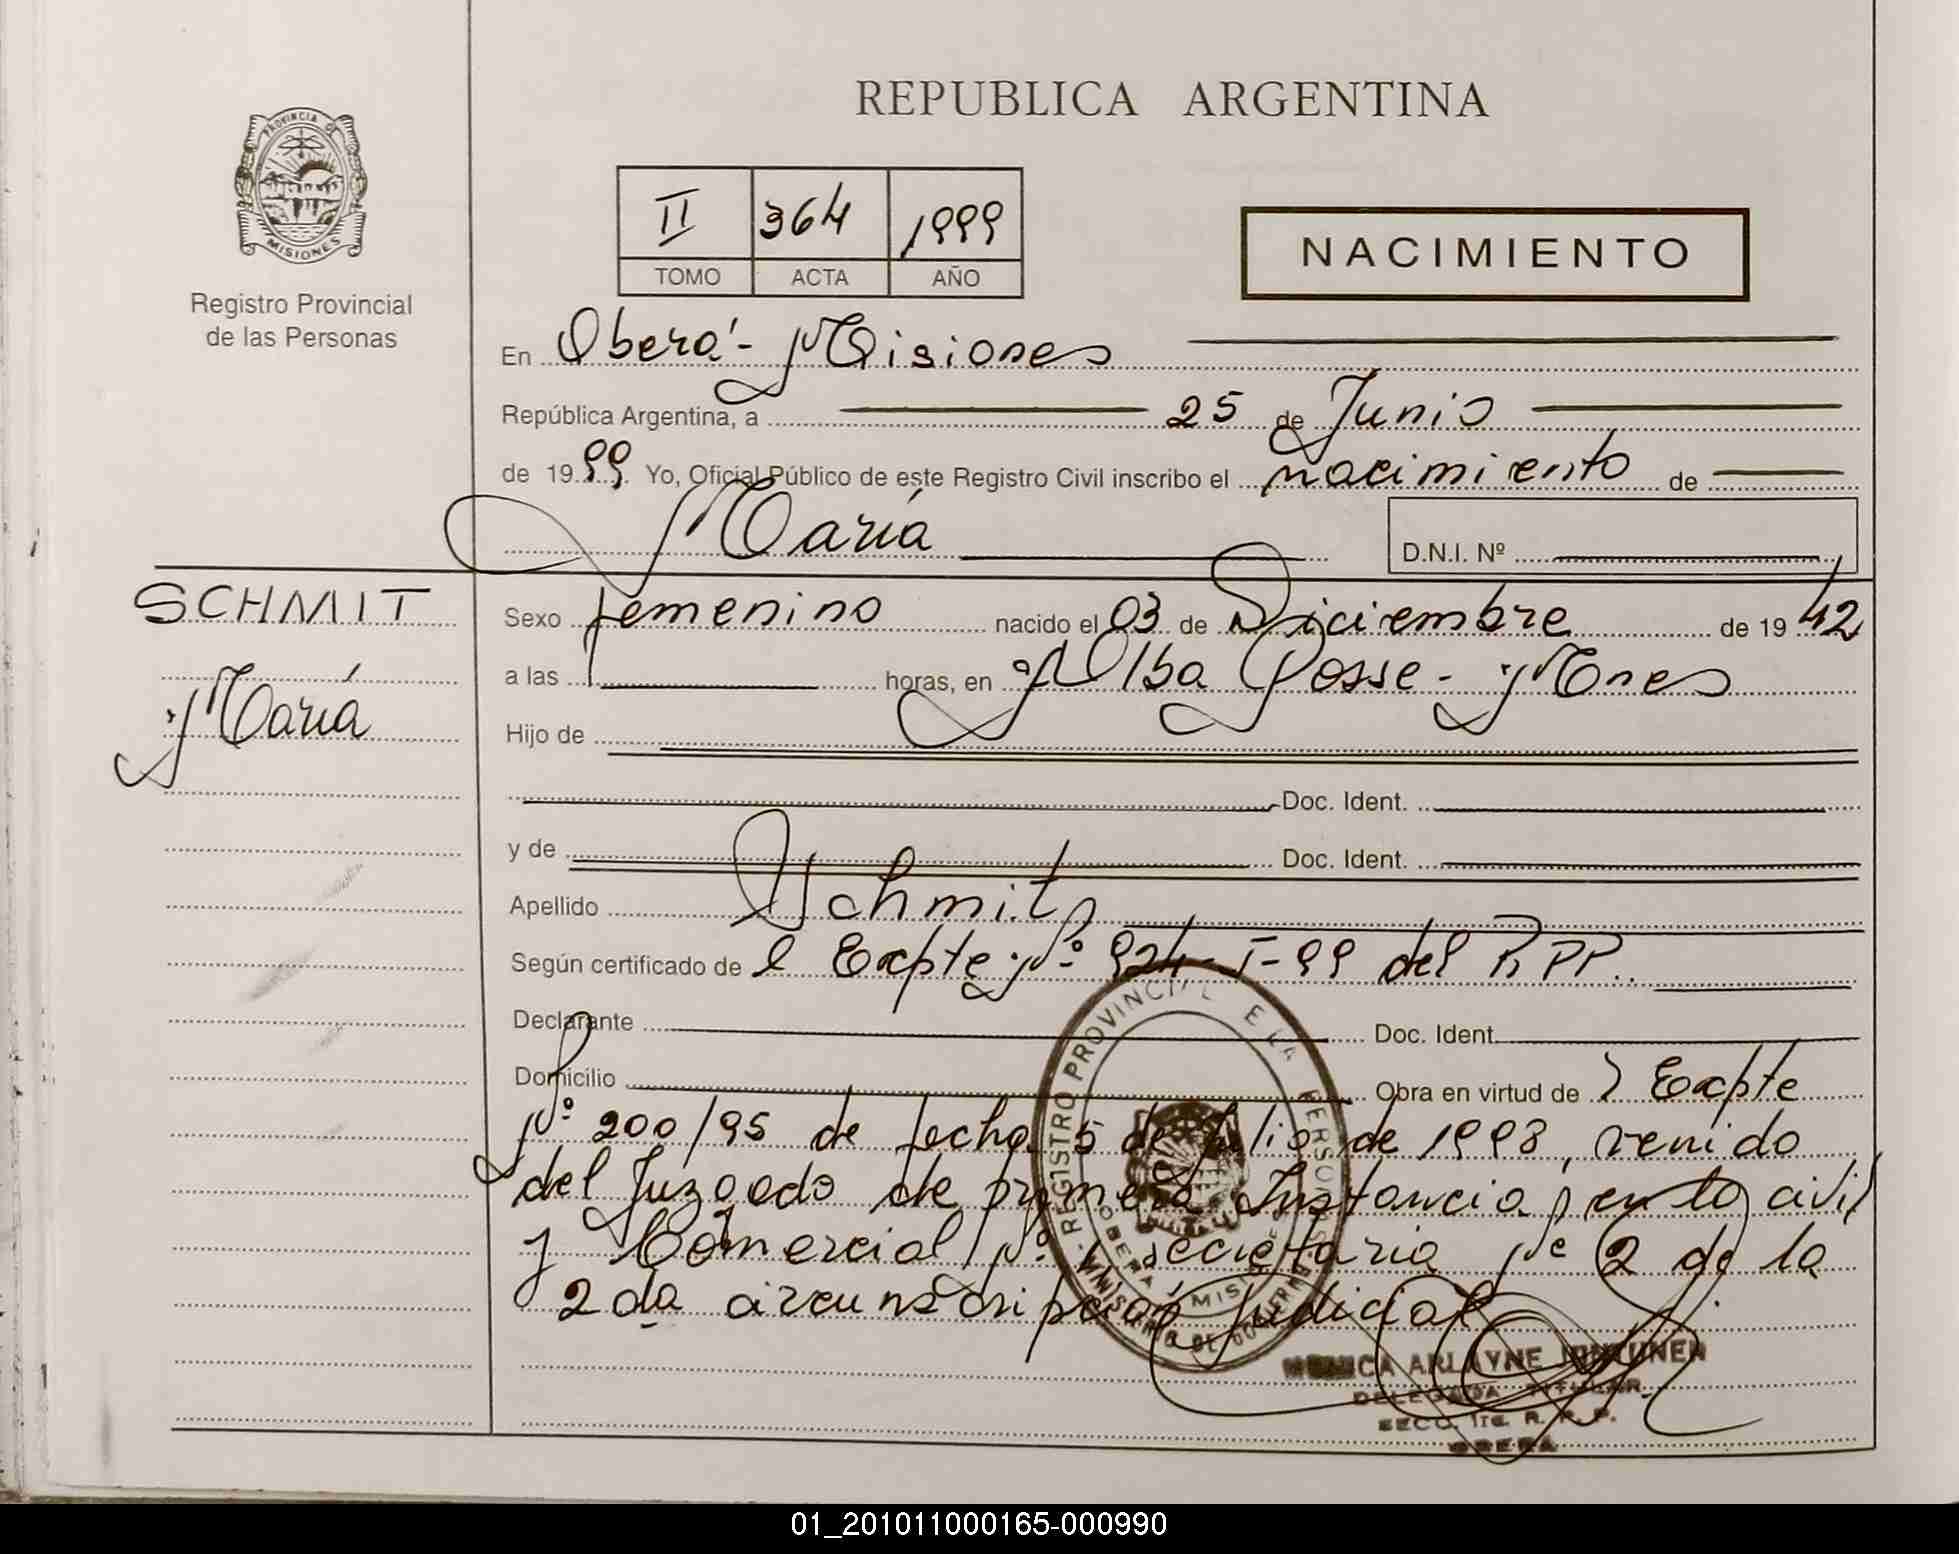 PROVINCIA DE
MISIONES
Registro Provincial
de las Personas
SCHMIT
María
REPUBLICA ARGENTINA
II 364 1999
TOMO ACTA AÑO
NACIMIENTO
En Oberá - Misiones
República Argentina, a 25 de Junio
de 1999 Yo, Oficial Público de este Registro Civil inscribo el nacimiento de
María D.N.I. Nº
Sexo femenino nacido el 03 de Diciembre de 1942
a las horas, en Alba Posse - Mnes
Hijo de
Doc. Ident.
y de Doc. Ident.
Apellido Schmit
Según certificado de l Expte Nº 924-I-99 del RPP.
Declarante Doc. Ident.
Domicilio Obra en virtud de Expte
Nº 200/95 de fecha 5 de Julio de 1998, venido
del Juzgado de primera Instancia en lo civil
y Comercial Nº secretaria Nº 2 de la
2da circunscripción judicial
REGISTRO PROVINCIAL DE LAS PERSONAS
MINISTERIO DE GOBIERNO
OBERA MISIONES
MONICA ARLAYNE
DELEGADA TITULAR
SECC. 1ra. R. P. P.
OBERA
01_201011000165-000990